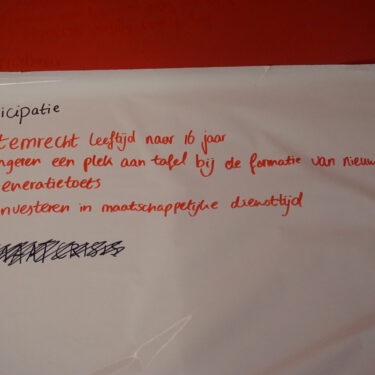 icipatie
temrecht leeftijd naar 16 jaar
ngeren een plek aan tafel bij de formatie van nieuw
eneratietoets
nvesteren in maatschappelijke diensttijd